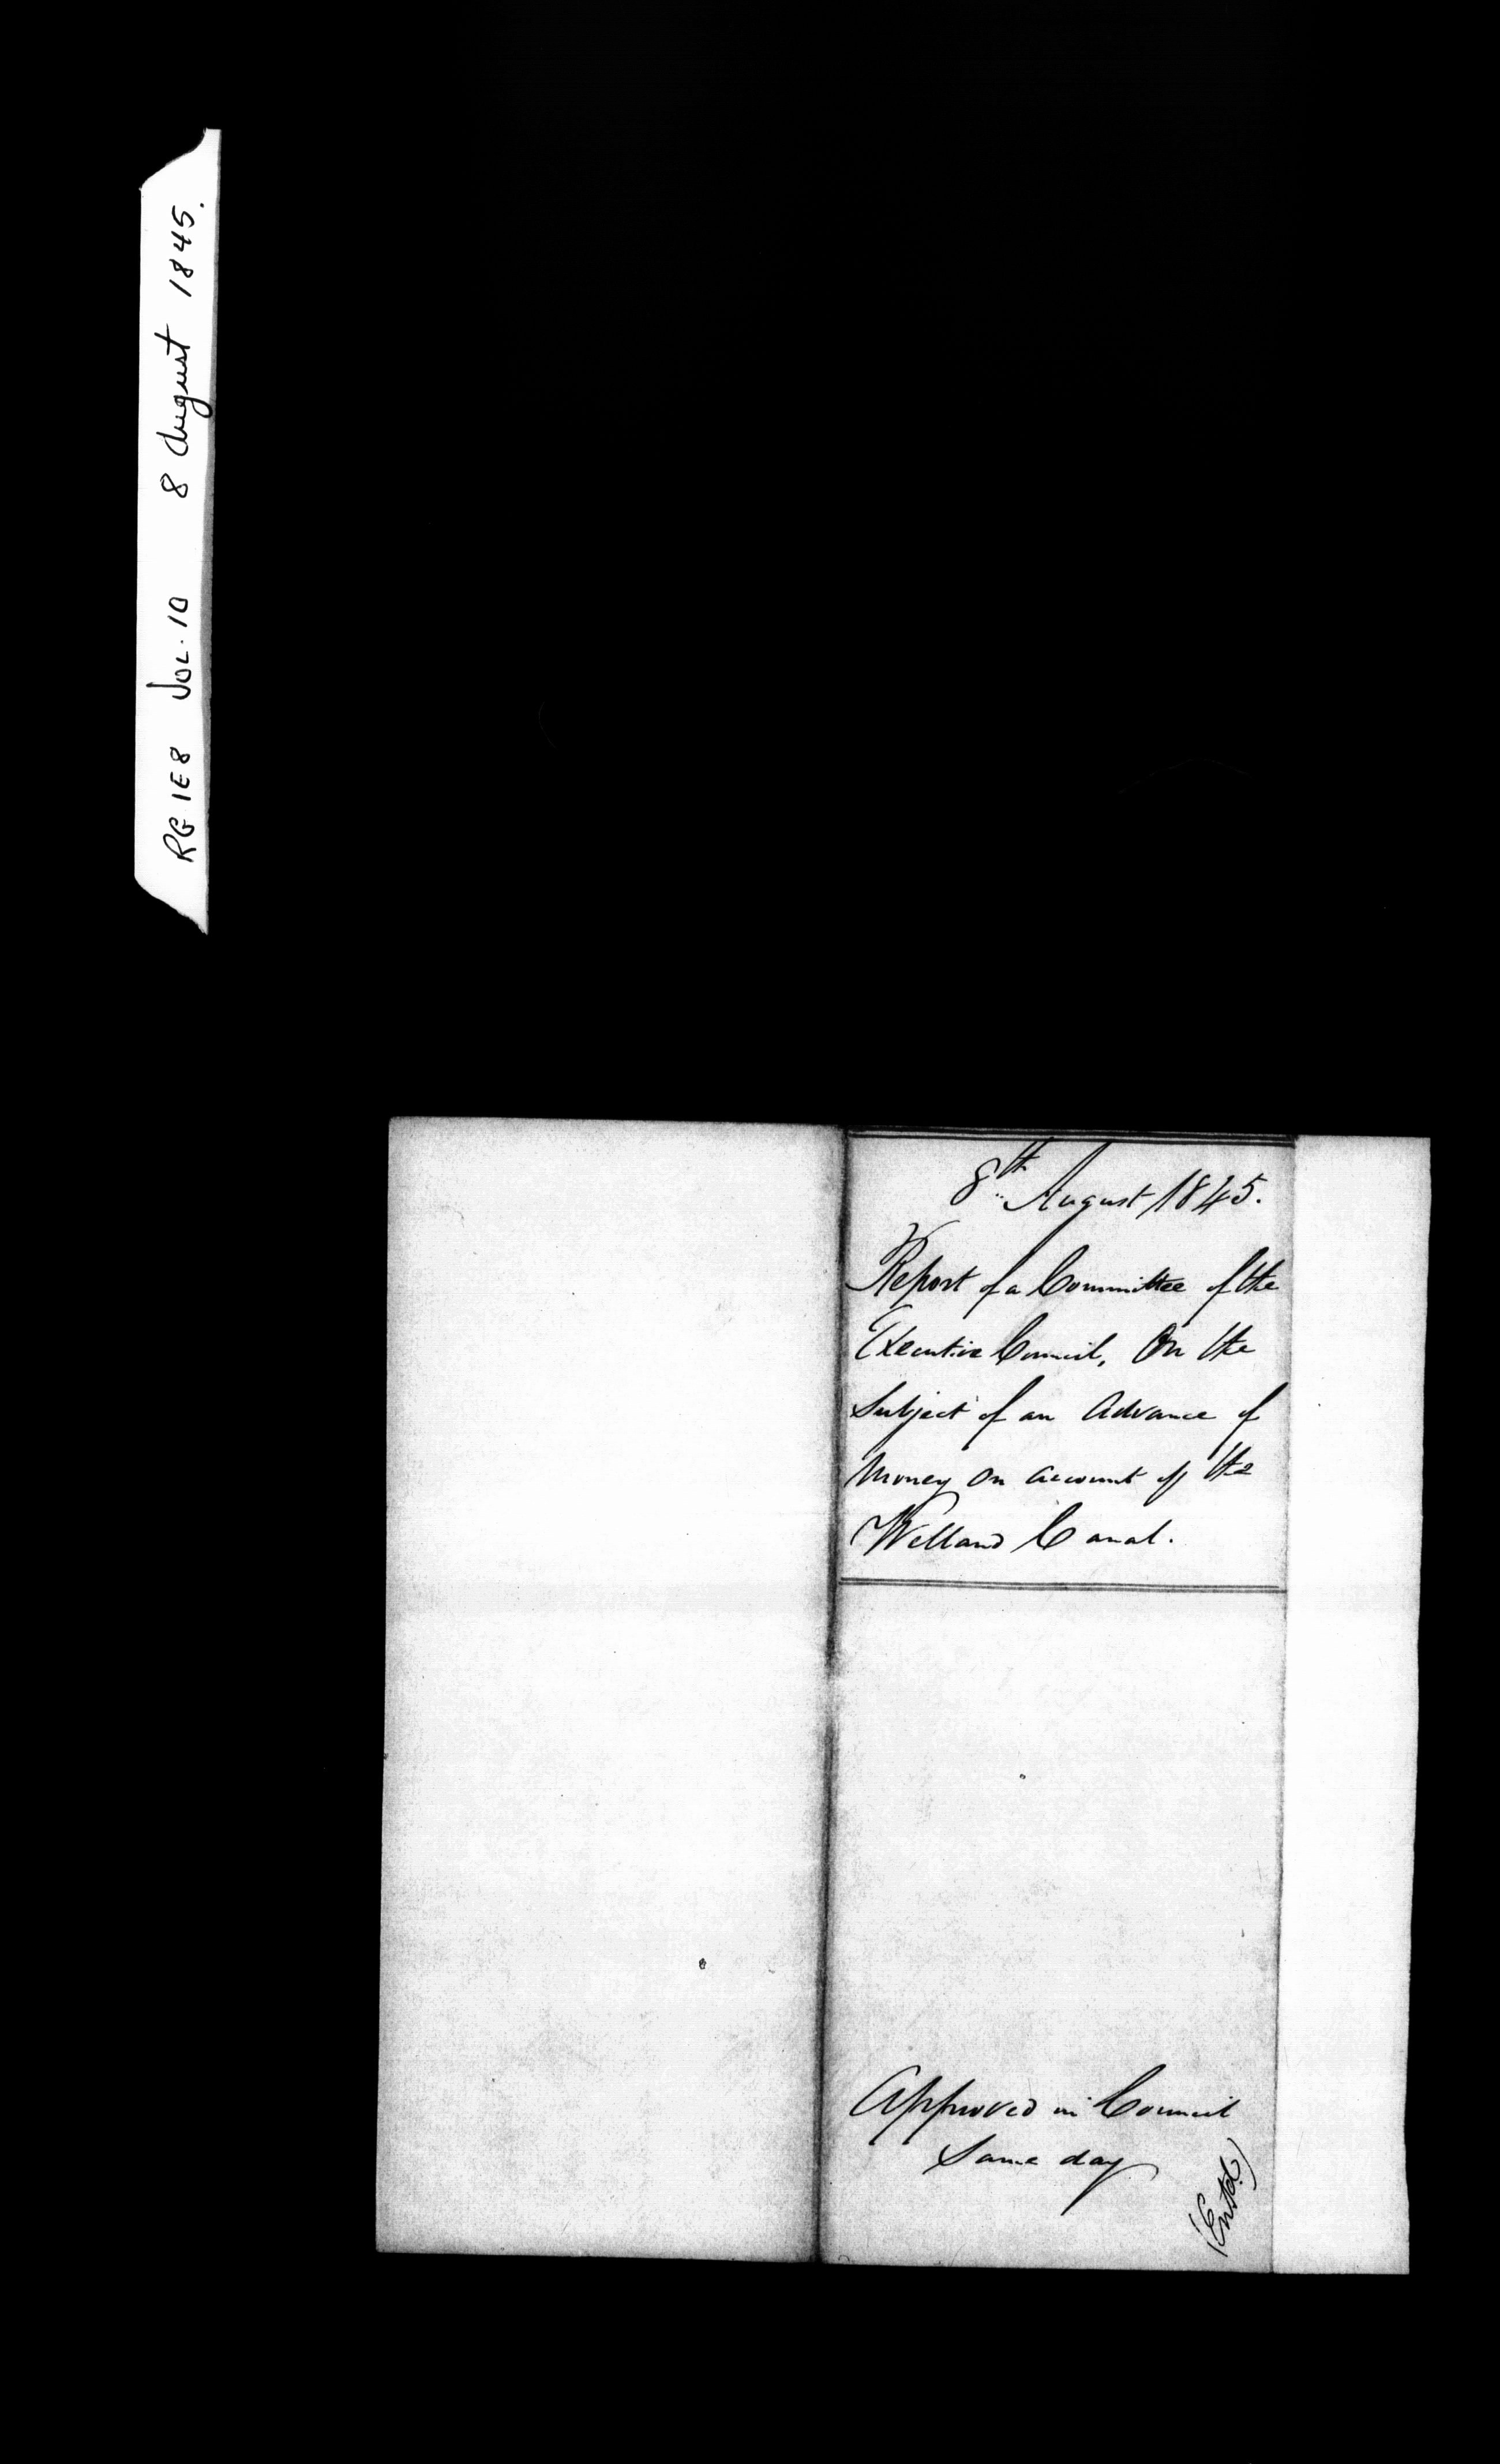 RG 1E8 VOL. 10 8 August 1845.
8th August 1845.
Report of a Committee of the
Executive Council, On the
Subject of an Advance of
Money on account of the
Welland Canal.
Approved in Council
Same day
(Entd.)